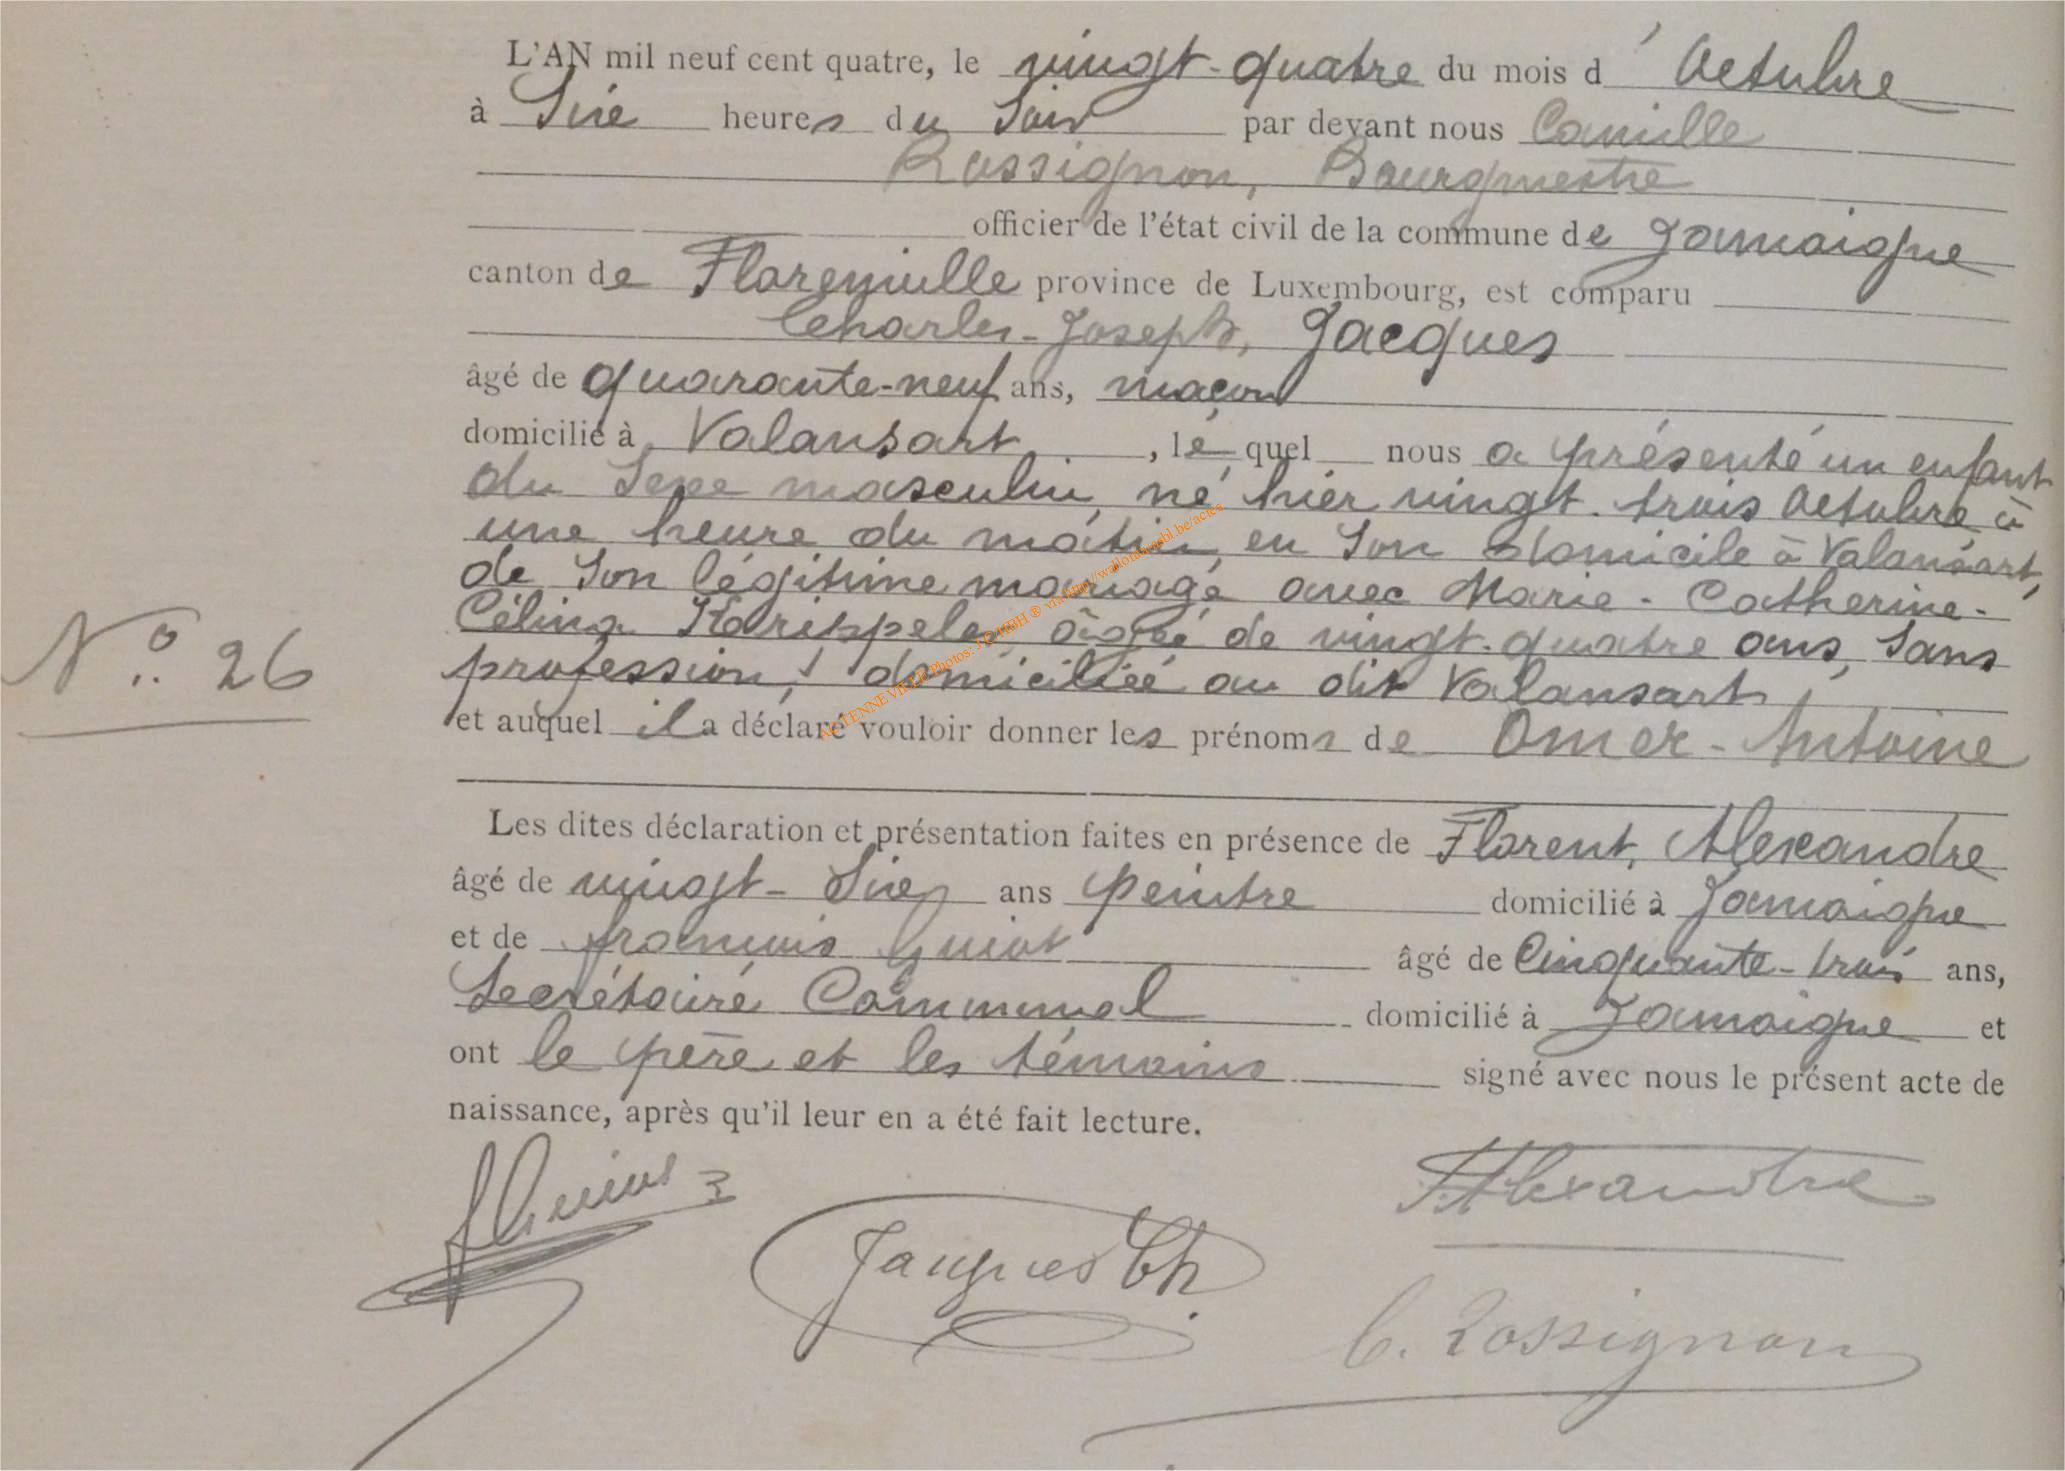 L'AN mil neuf cent quatre, le vingt-quatre du mois d'Octobre
à Six heures du Soir par devant nous Camille
Rossignon, Bourgmestre
officier de l'état civil de la commune de Jamoigne
canton de Florenville province de Luxembourg, est comparu
Charles-Joseph, Jacques
âgé de quarante-neuf ans, maçon
domicilié à Valansart, lequel nous a présenté un enfant
du Sexe masculin, né hier vingt-trois Octobre à
une heure du matin, en Son domicile à Valansart,
de Son légitime mariage avec Marie-Catherine-
N° 26
Célina âgée de vingt-quatre ans, Sans
profession, domiciliée au dit Valansart,
et auquel il a déclaré vouloir donner les prénoms de Omer-Antoine
Les dites déclaration et présentation faites en présence de Florent, Alexandre
âgé de vingt-Six ans peintre domicilié à Jamoigne
et de françois Guiot âgé de Cinquante-trois ans,
Secrétaire Communal domicilié à Jamoigne et
ont le père et les témoins signé avec nous le présent acte de
naissance, après qu'il leur en a été fait lecture.
Alexandre
Jacques Ch
C. Rossignon